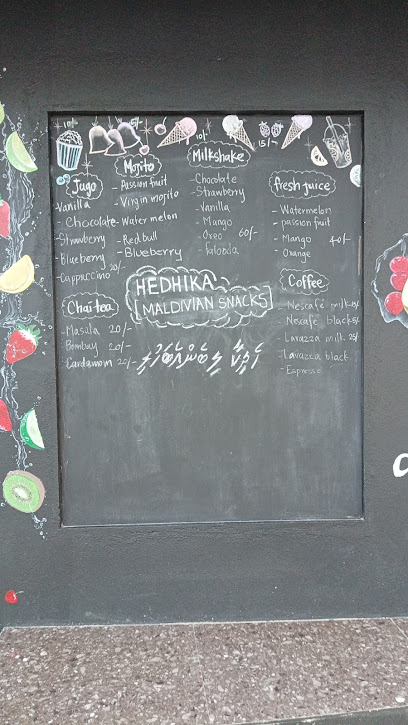 10/-
5/-
10/-
15/-
Jugo
Vanilla
- Chocolate
- Strawberry
- Blueberry
- Cappuccino 20/-
Mojito
- Passion fruit
- Virgin mojito
- Water melon
- Red bull
- Blueberry
Milkshake
- Chocolate
- Strawberry
- Vanilla
- Mango
- Oreo 60/-
- falooda
fresh juice
- Watermelon
- passion fruit
- Mango 40/-
- Orange
Chai tea
- Masala 20/-
- Bombay 20/-
- Cardamom 20/-
HEDHIKA
[MALDIVIAN SNACKS]
Coffee
- Nescafé milk
- Nescafe black
- Lavazza milk 25/
- Lavazza black
- Espresso